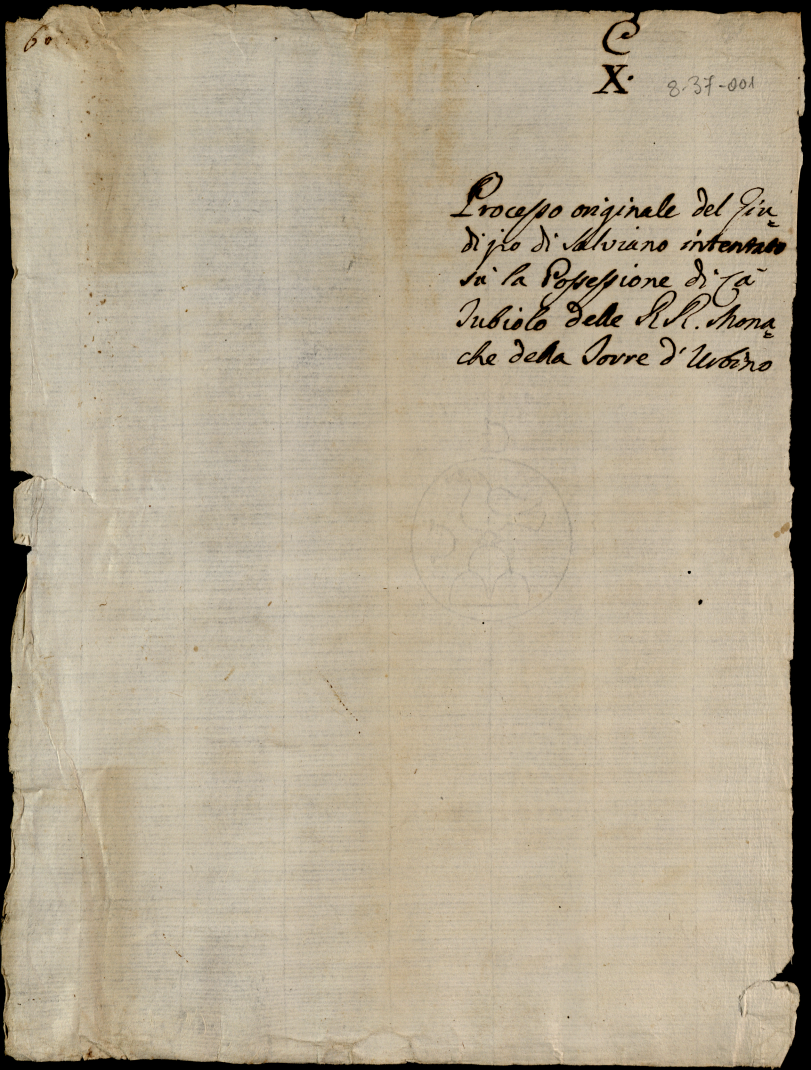 60
C
X.
8-37-001
Processo originale del Giu=
dizio di Salviano intentato
sù la Possessione di Cà
Tubiolo delle RR. Mona=
che della Torre d'Urbino